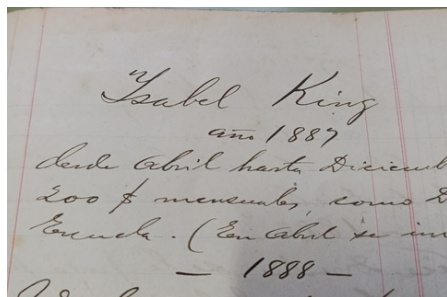 Isabel King
año 1887
desde Abril hasta Diciemb
200 $ mensuales, como D
Escuela. (En Abril se in
— 1888 —